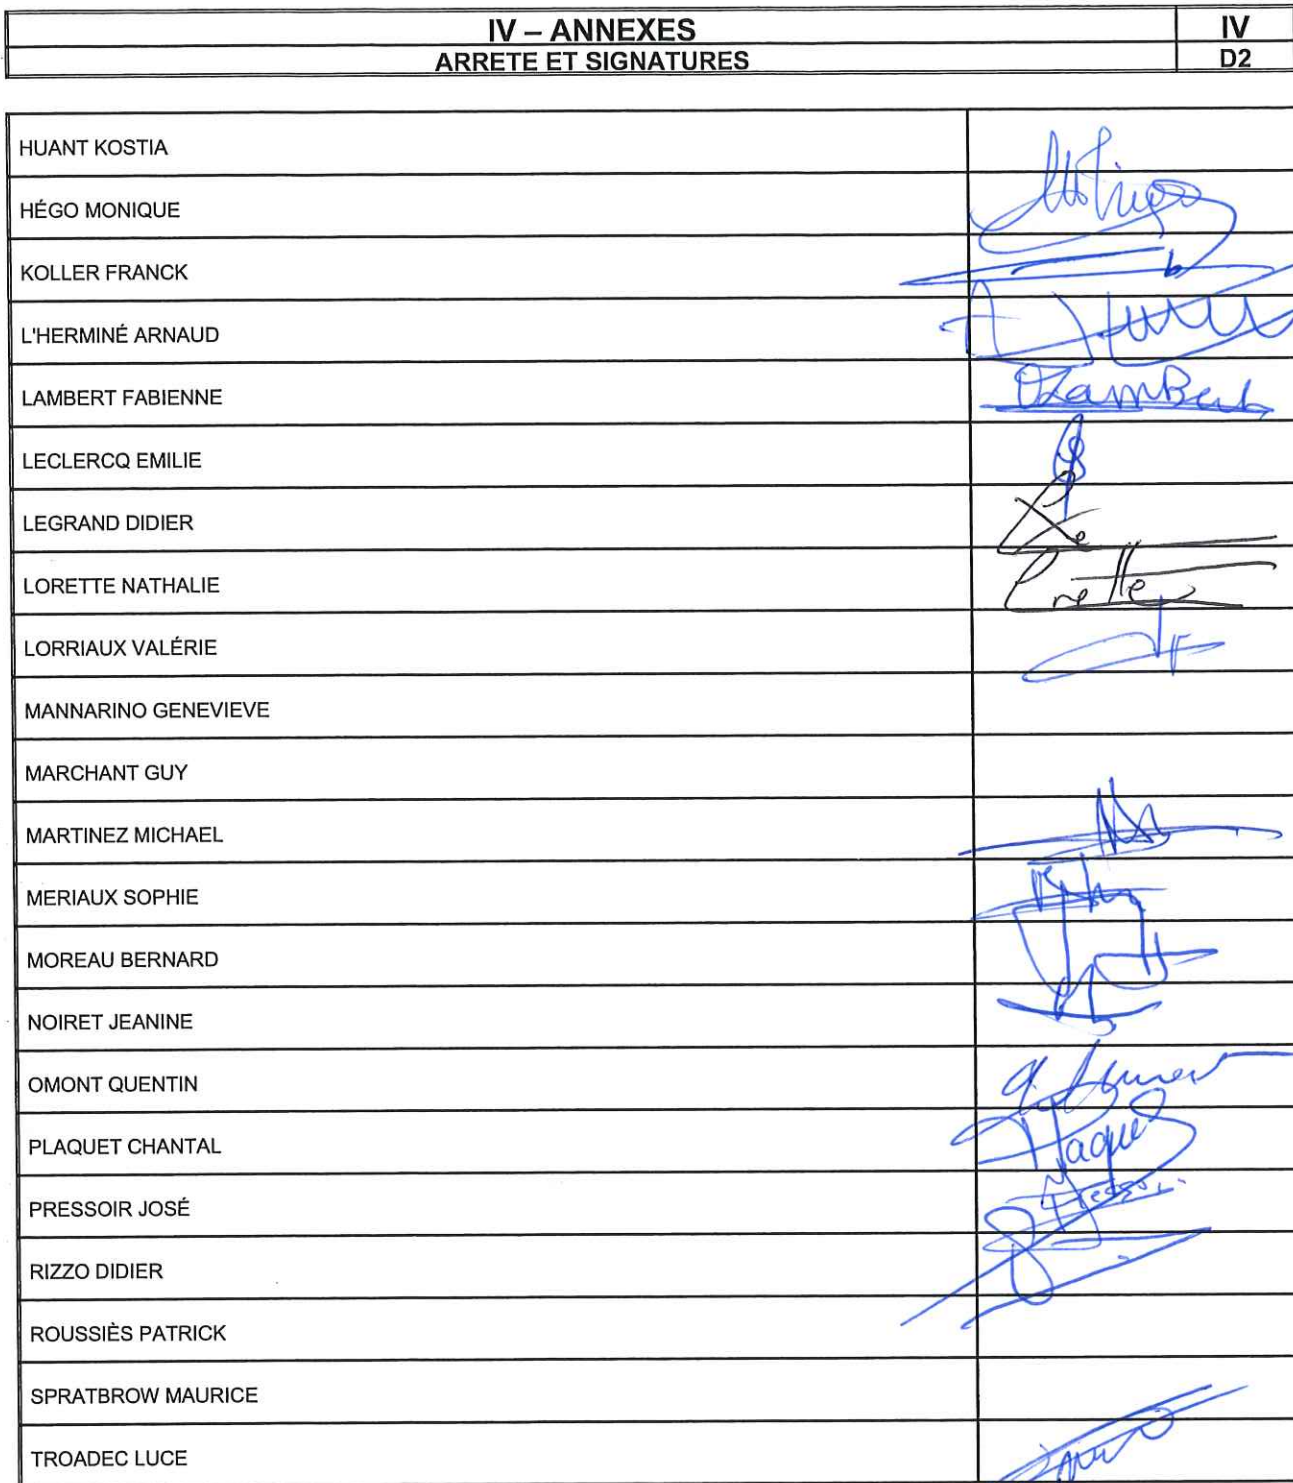 IV – ANNEXES IV
ARRETE ET SIGNATURES D2
HUANT KOSTIA
HÉGO MONIQUE
KOLLER FRANCK
L'HERMINÉ ARNAUD
LAMBERT FABIENNE
LECLERCQ EMILIE
LEGRAND DIDIER
LORETTE NATHALIE
LORRIAUX VALÉRIE
MANNARINO GENEVIEVE
MARCHANT GUY
MARTINEZ MICHAEL
MERIAUX SOPHIE
MOREAU BERNARD
NOIRET JEANINE
OMONT QUENTIN
PLAQUET CHANTAL
PRESSOIR JOSÉ
RIZZO DIDIER
ROUSSIÈS PATRICK
SPRATBROW MAURICE
TROADEC LUCE